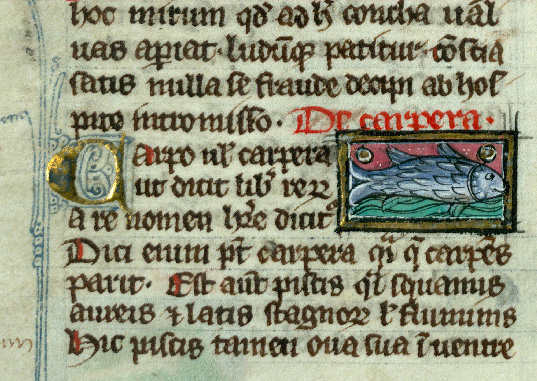 hoc mirum qd ad h̄ concha uāl
uas apiat · ludūq patitur · cōscia
satis nulla se fraude decipi ab hos
pite intromisso · De carpera ·
Carpo ul̄ carpera
ut dicit lib̄ reꝝ
a re nomen hr̄e dicit᷑
Dici enim pt̄ carpera qi q̄ carpēs
parit · Est aūt piscis qi squamis
aureis ⁊ latis stagnoꝝ l̄ fluminis
Hic piscis tamen oua sua ī uentre